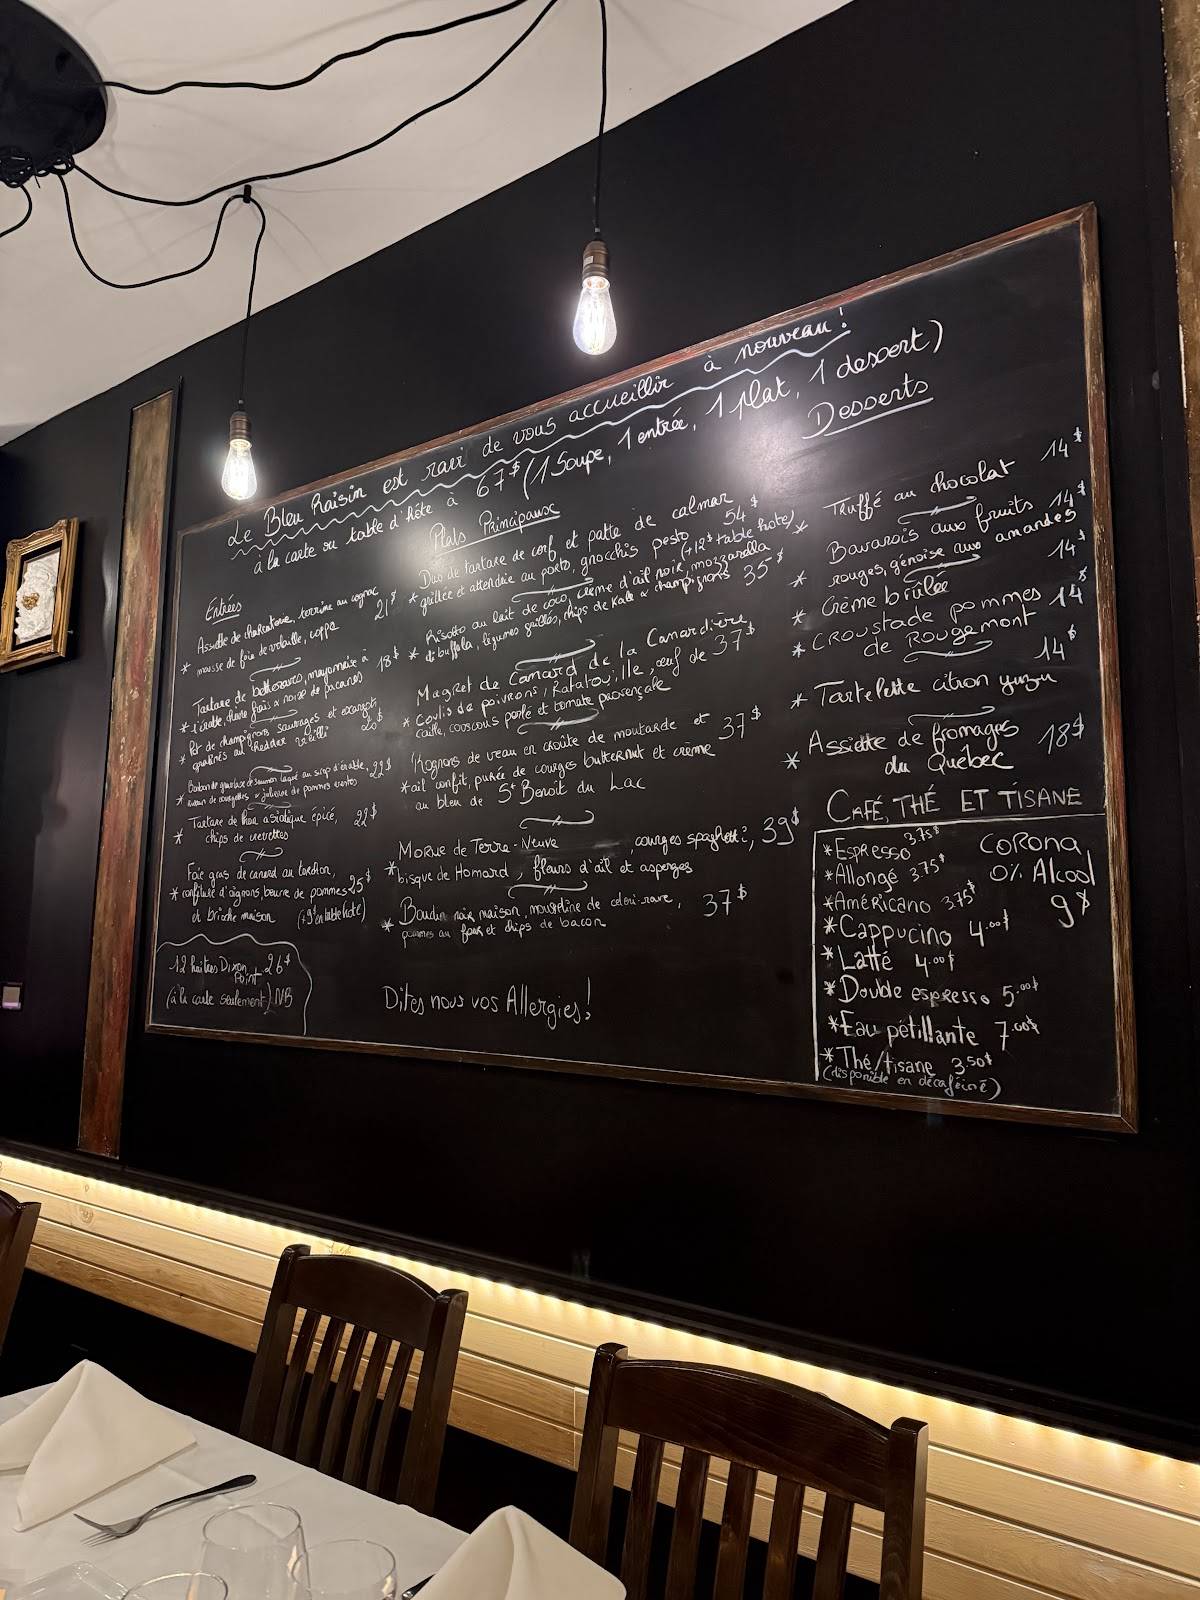 Le Bleu Raisin est ravi de vous accueillir à nouveau!
à la carte ou table d'hôte à 67$ (1 Soupe, 1 entrée, 1 plat, 1 dessert)
Entrées
Assiette de charcuterie, terrine au cognac
* mousse de foie de volaille, coppa 21$
Tartare de betteraves, mayonnaise à
* l'érable, chèvre frais & noix de pacanes 18$
Pot de champignons sauvages et escargots
* gratinés au cheddar vieilli 20$
saumon laqué au sirop d'érable, 22$
* de courgettes & julienne de pommes vertes
Tartare de thon asiatique épicé, 22$
* chips de crevettes
Foie gras de canard au torchon,
* confiture d'oignons, beurre de pommes 25$
et brioche maison (+9$ en table hôte)
12 huîtres Dixon Point 26$
(à la carte seulement) NB
Plats Principaux
Duo de tartare de cerf, et patte de calmar
* grillée et attendrie au porto, gnocchis pesto 54$
(+12$ table hote)
Risotto au lait de coco, crème d'ail noir, mozzarella
* di buffola, légumes grillés, chips de kale & champignons 35$
Magret de Canard de la Canardière
* Coulis de poivrons, Ratatouille, œuf de 37$
caille, couscous perlé et tomate provençale
Rognons de veau en croûte de moutarde et 37$
* ail confit, purée de courges butternut et crème
au bleu de St Benoit du Lac
Morue de Terre-Neuve, courges spaghetti, 39$
* bisque de Homard, fleurs d'ail et asperges
Boudin noir maison, mousseline de celeri-rave, 37$
* pommes au four et chips de bacon
Dites nous vos Allergies!
Desserts
* Truffé au chocolat 14$
Bavarois aux fruits 14$
* rouges, génoise aux amandes
* Crème brûlée 14$
* Croustade pommes 14$
de Rougemont
* Tartelette citron yuzu 14$
* Assiette de fromages 18$
du Québec
Café, Thé et Tisane
* Espresso 3.75$
* Allongé 3.75$
* Américano 3.75$
* Cappucino 4.00$
* Latté 4.00$
* Double espresso 5.00$
* Eau pétillante 7.00$
* Thé/tisane 3.50$
(disponible en décaféiné)
Corona
0% Alcool
9$